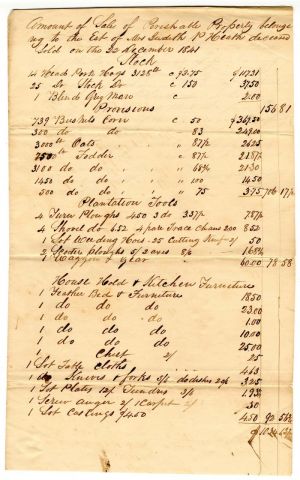 Amount of Sale of Perishable Property belong
ing to the Est of Mrs Judith P Heath deceased
Sold on the 22 December 1841
Stock
4 Head Pork Hogs 3128 lb c 3.75 $117.31
25 Do Stock Do c 150 37.50
1 Blind Grey Mare c 2.00 156 81
Provisions
739 Bushels Corn c 50 $369.50
300 do do 83 249.00
3000 lb Oats " 87½ 26.25
2500 lb Fodder c 87½ 21.87½
3100 do do " 68¾ 21.30
1450 do do " 100 14.50
500 do do " 75 3.75 706 17½
Plantation Tools
4 Turn Ploughs 450 3 do 337½ 7.87½
4 Shovel do 652 4 pare Trace Chains 200 8.52
1 Lot Weeding Hoes 25 Cutting Knife 2/ 50
2 ploughs 5/ 2 axes 8/6 1.68¾
1 Waggon & Gear 60.00 78 58
House Hold & Kitchen Furniture
1 Feather Bed & Furniture 18.50
1 do do do 23.00
1 do do do 1.00
1 do do do 10.00
1 do do do 25.00
1 Chest 2/ 25
1 Lot Table Cloths 4.63
1 do Knives & forks 3/ do dishes 3.25
1 Lot Plates 12/ Tumblers 3/6 1.93¾
1 Screw auger 2/ 1 Carpet 2/ .30
1 Lot Castings $4.50 4.50 92 56¼